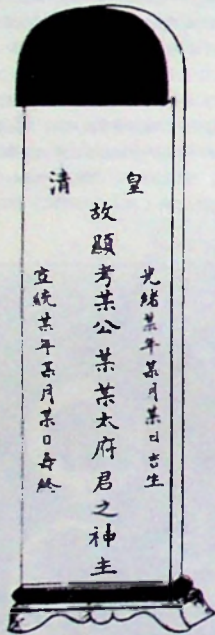 皇清
光緒某年某月某日吉生
故顯考某公某某太府君之神主
宣統某年某月某日壽終